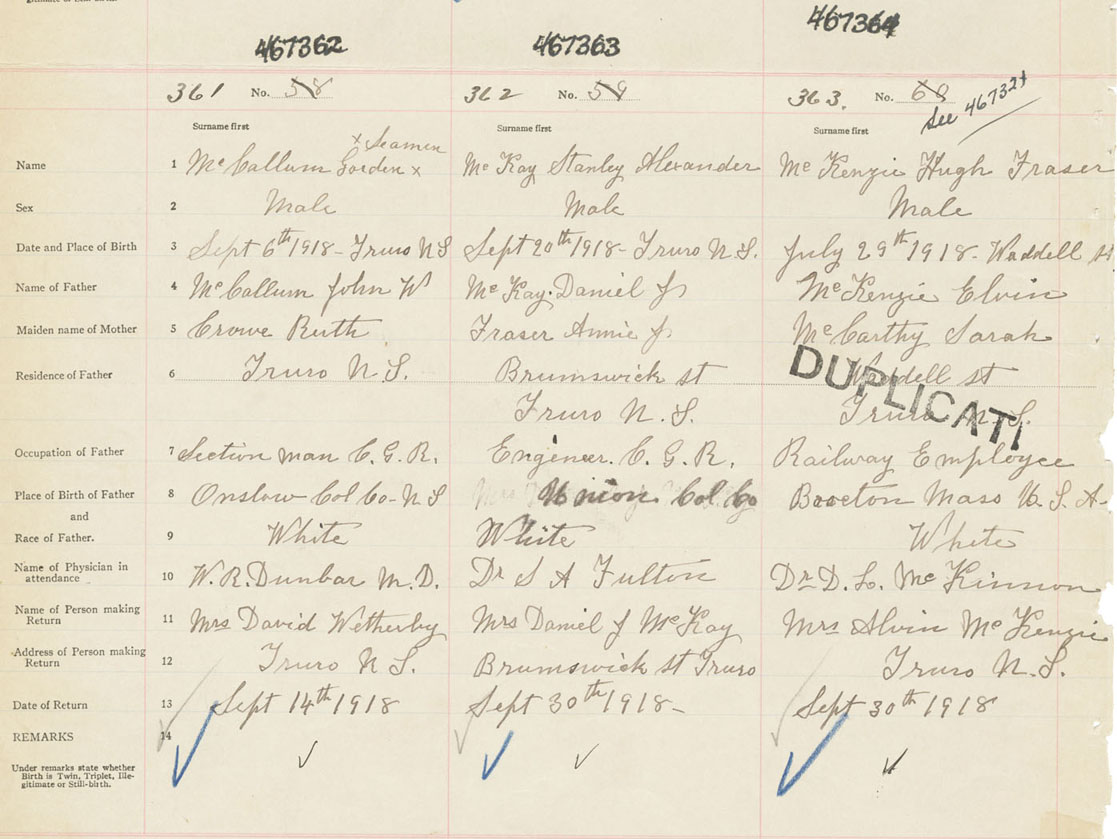 467362 467363 467364
361 No. 58 362 No. 59 363. No. 60 See 46732
Surname first Surname first Surname first
x Seamen
Name 1 McCallum Gorden x McKay Stanley Alexander McKenzie Hugh Fraser
Sex 2 Male Male Male
Date and Place of Birth 3 Sept 6th 1918 - Truro N S Sept 20th 1918 - Truro N.S. July 29th 1918 - Waddell st
Name of Father 4 McCallum John W McKay. Daniel J McKenzie Elvin
Maiden name of Mother 5 Crowe Ruth Fraser Annie J. McCarthy Sarah
Residence of Father 6 Truro N.S. Brumswick st Waddell st
DUPLICAT
Truro N.S. Truro N.S.
Occupation of Father 7 Section man C.G.R. Engineer. C.G.R. Railway Employee
Place of Birth of Father 8 Onslow Col Co- N S Union. Col Co Boston Mass U.S.A.
and
Race of Father. 9 White White White
Name of Physician in
attendance 10 W.R. Dunbar M.D. Dr S A Fulton Dr D.L. McKinnon
Name of Person making
Return 11 Mrs David Wetherby Mrs Daniel J McKay Mrs Alvin McKenzie
Address of Person making
Return 12 Truro N S. Brumswick st Truro Truro N.S.
Date of Return 13 Sept 14th 1918 Sept 30th 1918- Sept 30th 1918
REMARKS 14
Under remarks state whether
Birth is Twin, Triplet, Ille-
gitimate or Still-birth.